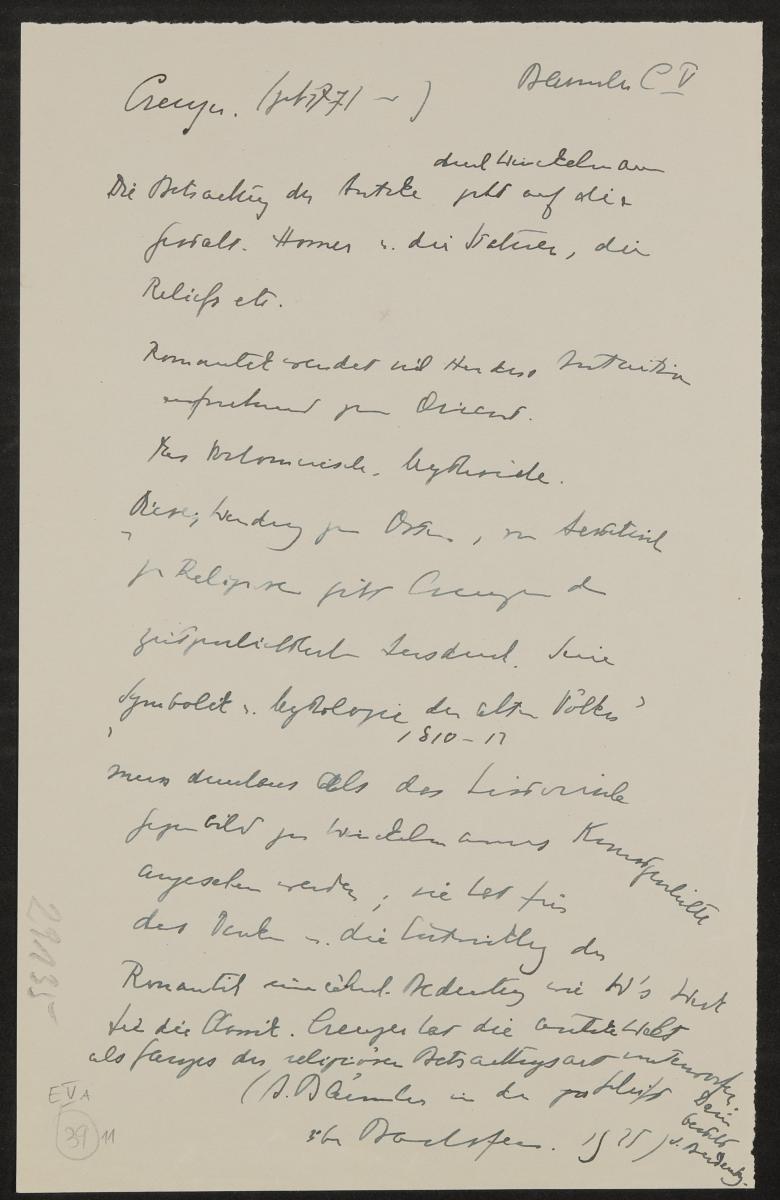 Baeumler C V
Creuzer. (geb 1771 – )
durch Winckelmann
Die Betrachtung der Antike geht auf die
Gestalt. Homer u. die Statuen, die
Reliefs etc.
Romantik wendet sich Herders Intuition
entsprechend zum Orient.
Das Vorhomerische. Mythische.
Diese Wendung zum Osten, vom Aesthetisch
zu Religiösen gibt Creuzer d
zeitgeschichtlich Ausdruck. Seine
„Symbolik u. Mythologie der alten Völker"
1810–12
muss durchaus als das historische
Gegenbild zu Winckelmanns Kunstgeschichte
angesehen werden; sie hat für
das Denken u. die Entwicklung der
Romantik eine ähnl. Bedeutung wie W's Werk
für die Classik. Creuzer hat die antike Welt
als Ganzes der religiösen Betrachtungsart unterworfen.
Darin
besteht
s. Bedeutg.
(A. Bäumler in der
über Bachofen. 1925)
29135
E V A
39 11